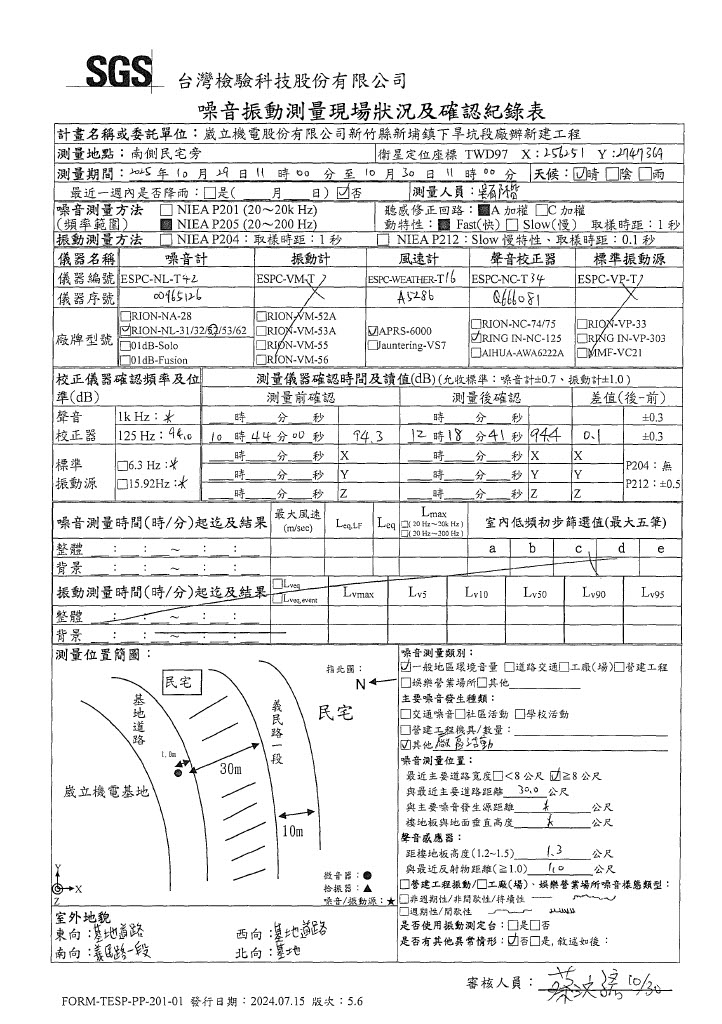 SGS 台灣檢驗科技股份有限公司
噪音振動測量現場狀況及確認紀錄表
計畫名稱或委託單位：崴立機電股份有限公司新竹縣新埔鎮下旱坑段廠辦新建工程
測量地點：南側民宅旁 衛星定位座標 TWD97 X：256251 Y：2747369
測量期間：2025 年 10 月 29 日 11 時 00 分 至 10 月 30 日 11 時 00 分 天候：☑晴 □陰 □雨
最近一週內是否降雨：□是( 月 日) ☑否 測量人員：
噪音測量方法 □ NIEA P201 (20～20k Hz) 聽感修正回路：■A 加權 □C 加權
(頻率範圍) ■ NIEA P205 (20～200 Hz) 動特性：■ Fast(快) □ Slow(慢) 取樣時距：1 秒
振動測量方法 □ NIEA P204：取樣時距：1 秒 □ NIEA P212：Slow 慢特性、取樣時距：0.1 秒
儀器名稱 噪音計 振動計 風速計 聲音校正器 標準振動源
儀器編號 ESPC-NL-T42 ESPC-VM-T ESPC-WEATHER-T16 ESPC-NC-T34 ESPC-VP-T
儀器序號 00965126 A5286 Q666081
廠牌型號
□RION-NA-28
☑RION-NL-31/32/52/53/62
□01dB-Solo
□01dB-Fusion
□RION-VM-52A
□RION-VM-53A
□RION-VM-55
□RION-VM-56
☑APRS-6000
□Jauntering-VS7
□RION-NC-74/75
☑RING IN-NC-125
□AIHUA-AWA6222A
□RION-VP-33
□RING IN-VP-303
□MMF-VC21
校正儀器確認頻率及位準(dB) 測量儀器確認時間及讀值(dB) (允收標準：噪音計±0.7、振動計±1.0)
測量前確認 測量後確認 差值(後-前)
聲音 1k Hz： 時 分 秒 時 分 秒 ±0.3
校正器 125 Hz：94.0 10 時 44 分 00 秒 94.3 12 時 18 分 41 秒 94.4 0.1 ±0.3
標準
振動源
□6.3 Hz：
□15.92Hz：
時 分 秒 X 時 分 秒 X X
時 分 秒 Y 時 分 秒 Y Y
時 分 秒 Z 時 分 秒 Z Z
P204：無
P212：±0.5
噪音測量時間(時/分)起迄及結果 最大風速 (m/sec) Leq,LF Leq Lmax □(20 Hz～20k Hz) □(20 Hz～200 Hz) 室內低頻初步篩選值(最大五筆)
整體 ： ： ～ ： ： a b c d e
背景 ： ： ～ ： ：
振動測量時間(時/分)起迄及結果 □Lveq □Lveq,event Lvmax Lv5 Lv10 Lv50 Lv90 Lv95
整體 ： ： ～ ： ：
背景 ： ： ～ ： ：
測量位置簡圖：
指北圖：
N
民宅
基地道路
義民路一段
民宅
1.0m
30m
崴立機電基地
10m
微音器：●
拾振器：▲
噪音/振動源：★
Y
X
Z
室外地貌
東向：基地道路 西向：基地道路
南向：義民路一段 北向：基地
噪音測量類別：
☑一般地區環境音量 □道路交通□工廠(場)□營建工程
□娛樂營業場所□其他
主要噪音發生種類：
□交通噪音□社區活動 □學校活動
□營建工程機具/數量：
☑其他 廠區活動
噪音測量位置：
最近主要道路寬度□<8 公尺 ☑≧8 公尺
與最近主要道路距離 30.0 公尺
與主要噪音發生源距離 公尺
樓地板與地面垂直高度 公尺
聲音感應器：
距樓地板高度(1.2~1.5) 1.3 公尺
與最近反射物距離(≧1.0) 1.0 公尺
□營建工程振動/□工廠(場)、娛樂營業場所噪音樣態類型：
□非週期性/非間歇性/持續性
□週期性/間歇性
是否使用振動測定台：□是□否
是否有其他異常情形：☑否□是,敘述如後：
審核人員： 10/30
FORM-TESP-PP-201-01 發行日期：2024.07.15 版次：5.6